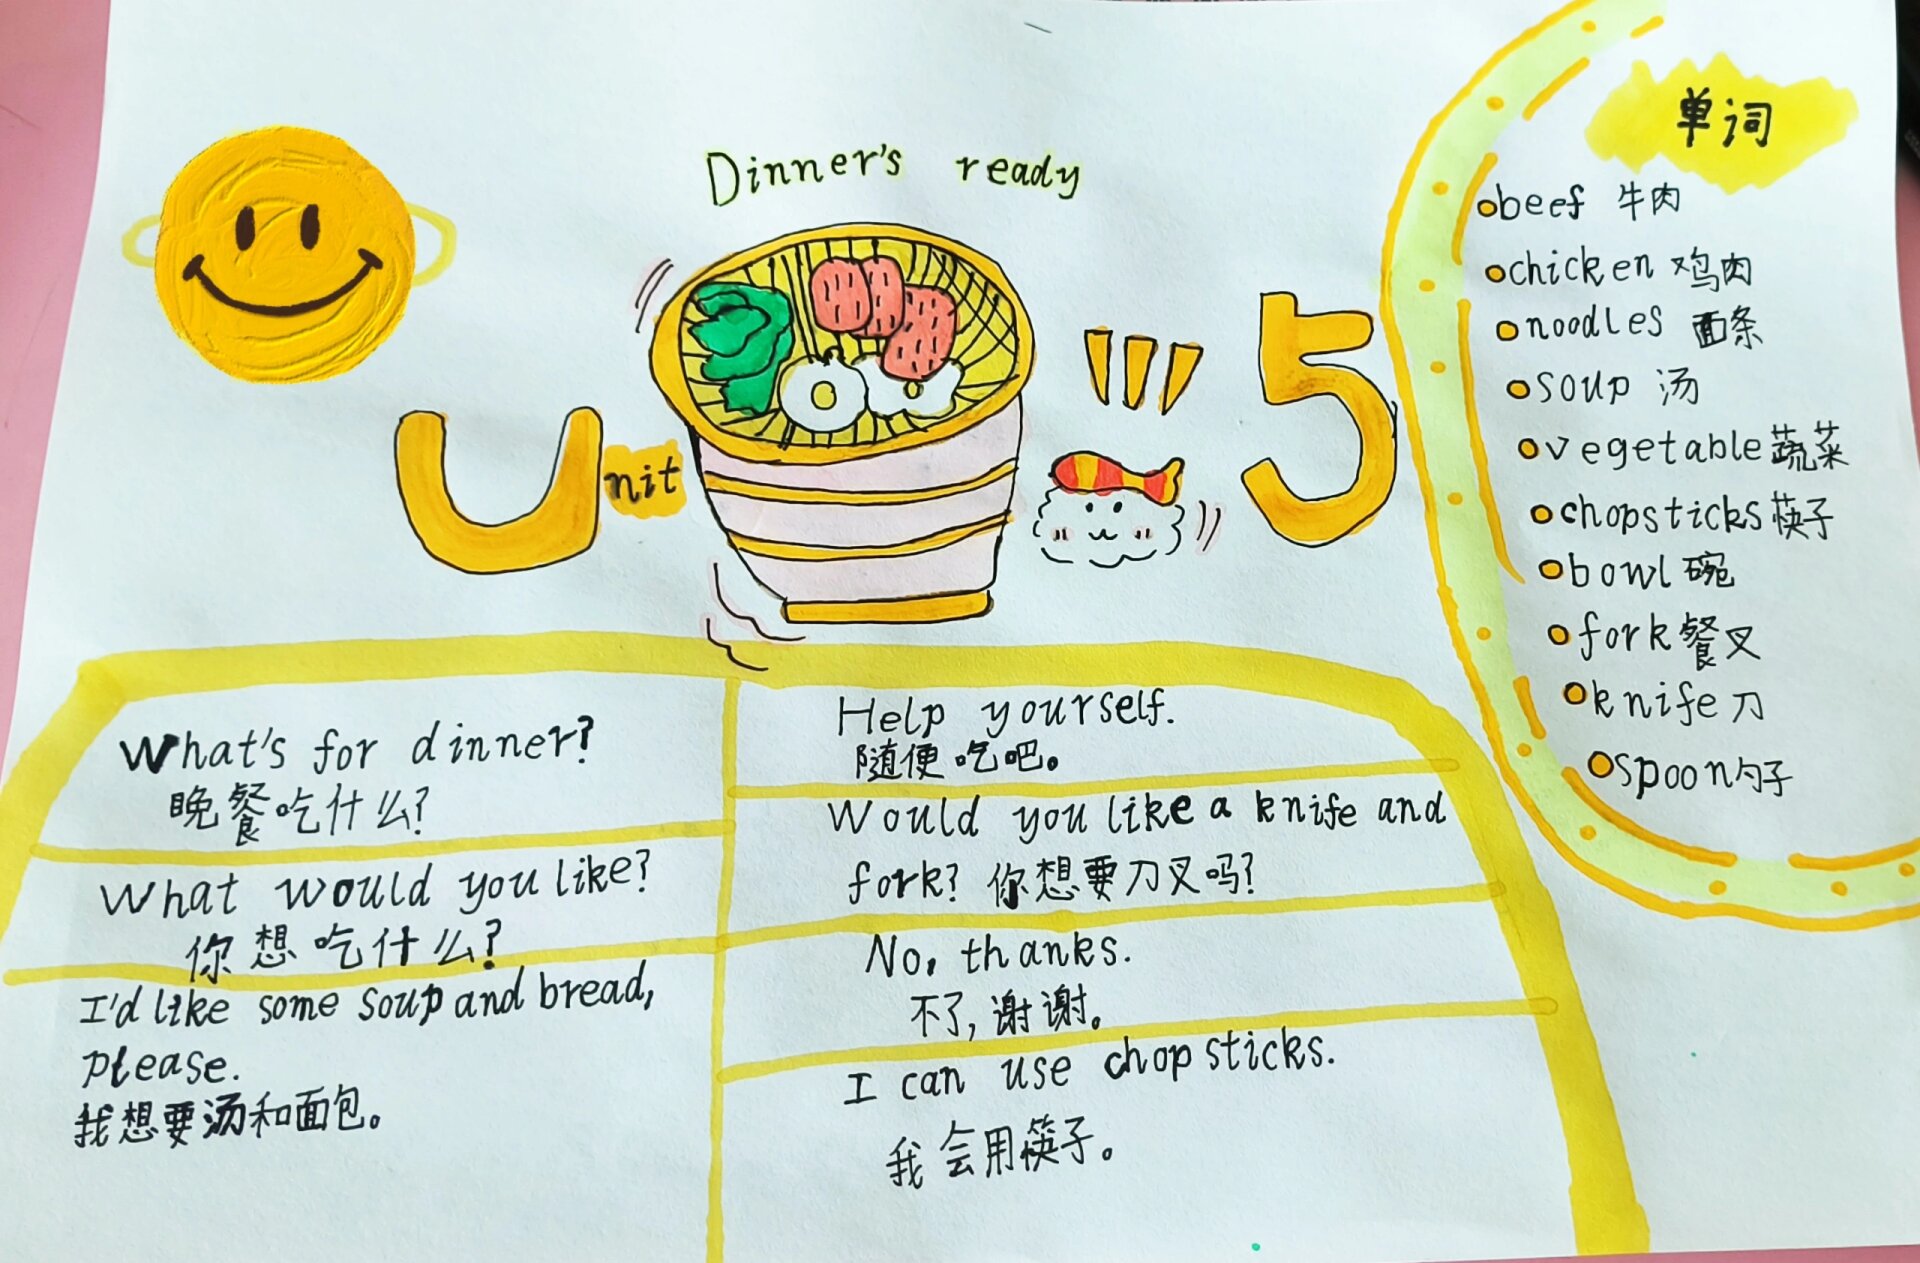 Dinner's ready
Unit 5
What's for dinner?
晚餐吃什么?
What would you like?
你想吃什么?
I'd like some soup and bread,
please.
我想要汤和面包。
Help yourself.
随便吃吧。
Would you like a knife and
fork? 你想要刀叉吗?
No, thanks.
不了,谢谢。
I can use chopsticks.
我会用筷子。
单词
beef 牛肉
chicken 鸡肉
noodles 面条
soup 汤
vegetable 蔬菜
chopsticks 筷子
bowl 碗
fork 餐叉
knife 刀
spoon 勺子